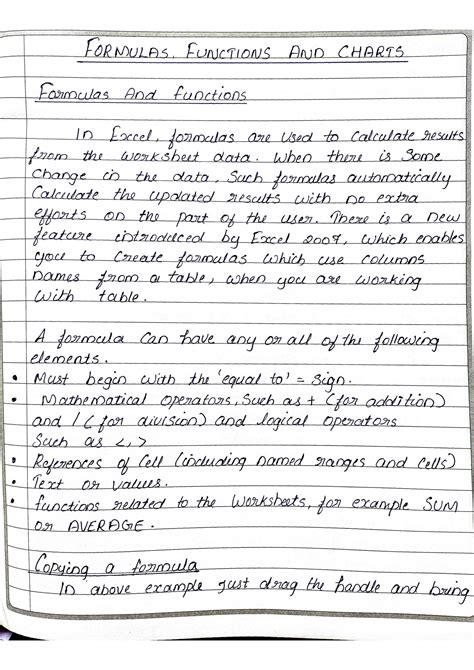 FORMULAS, FUNCTIONS AND CHARTS
Formulas And functions
In Excel, formulas are used to calculate results
from the worksheet data. When there is Some
change in the data, Such formulas automatically
Calculate the updated results with no extra
efforts on the part of the user. There is a new
feature introduced by Excel 2007, which enables
you to Create formulas which use columns
names from a table, when you are working
with table.
A formula Can have any or all of the following
elements.
• Must begin with the 'equal to' = Sign.
• Mathematical operators, Such as + (for addition)
and / (for division) and logical operators
Such as <, >
• References of Cell (including named ranges and cells)
• Text or values.
• functions related to the Worksheets, for example SUM
or AVERAGE.
Copying a formula
In above example just drag the handle and bring